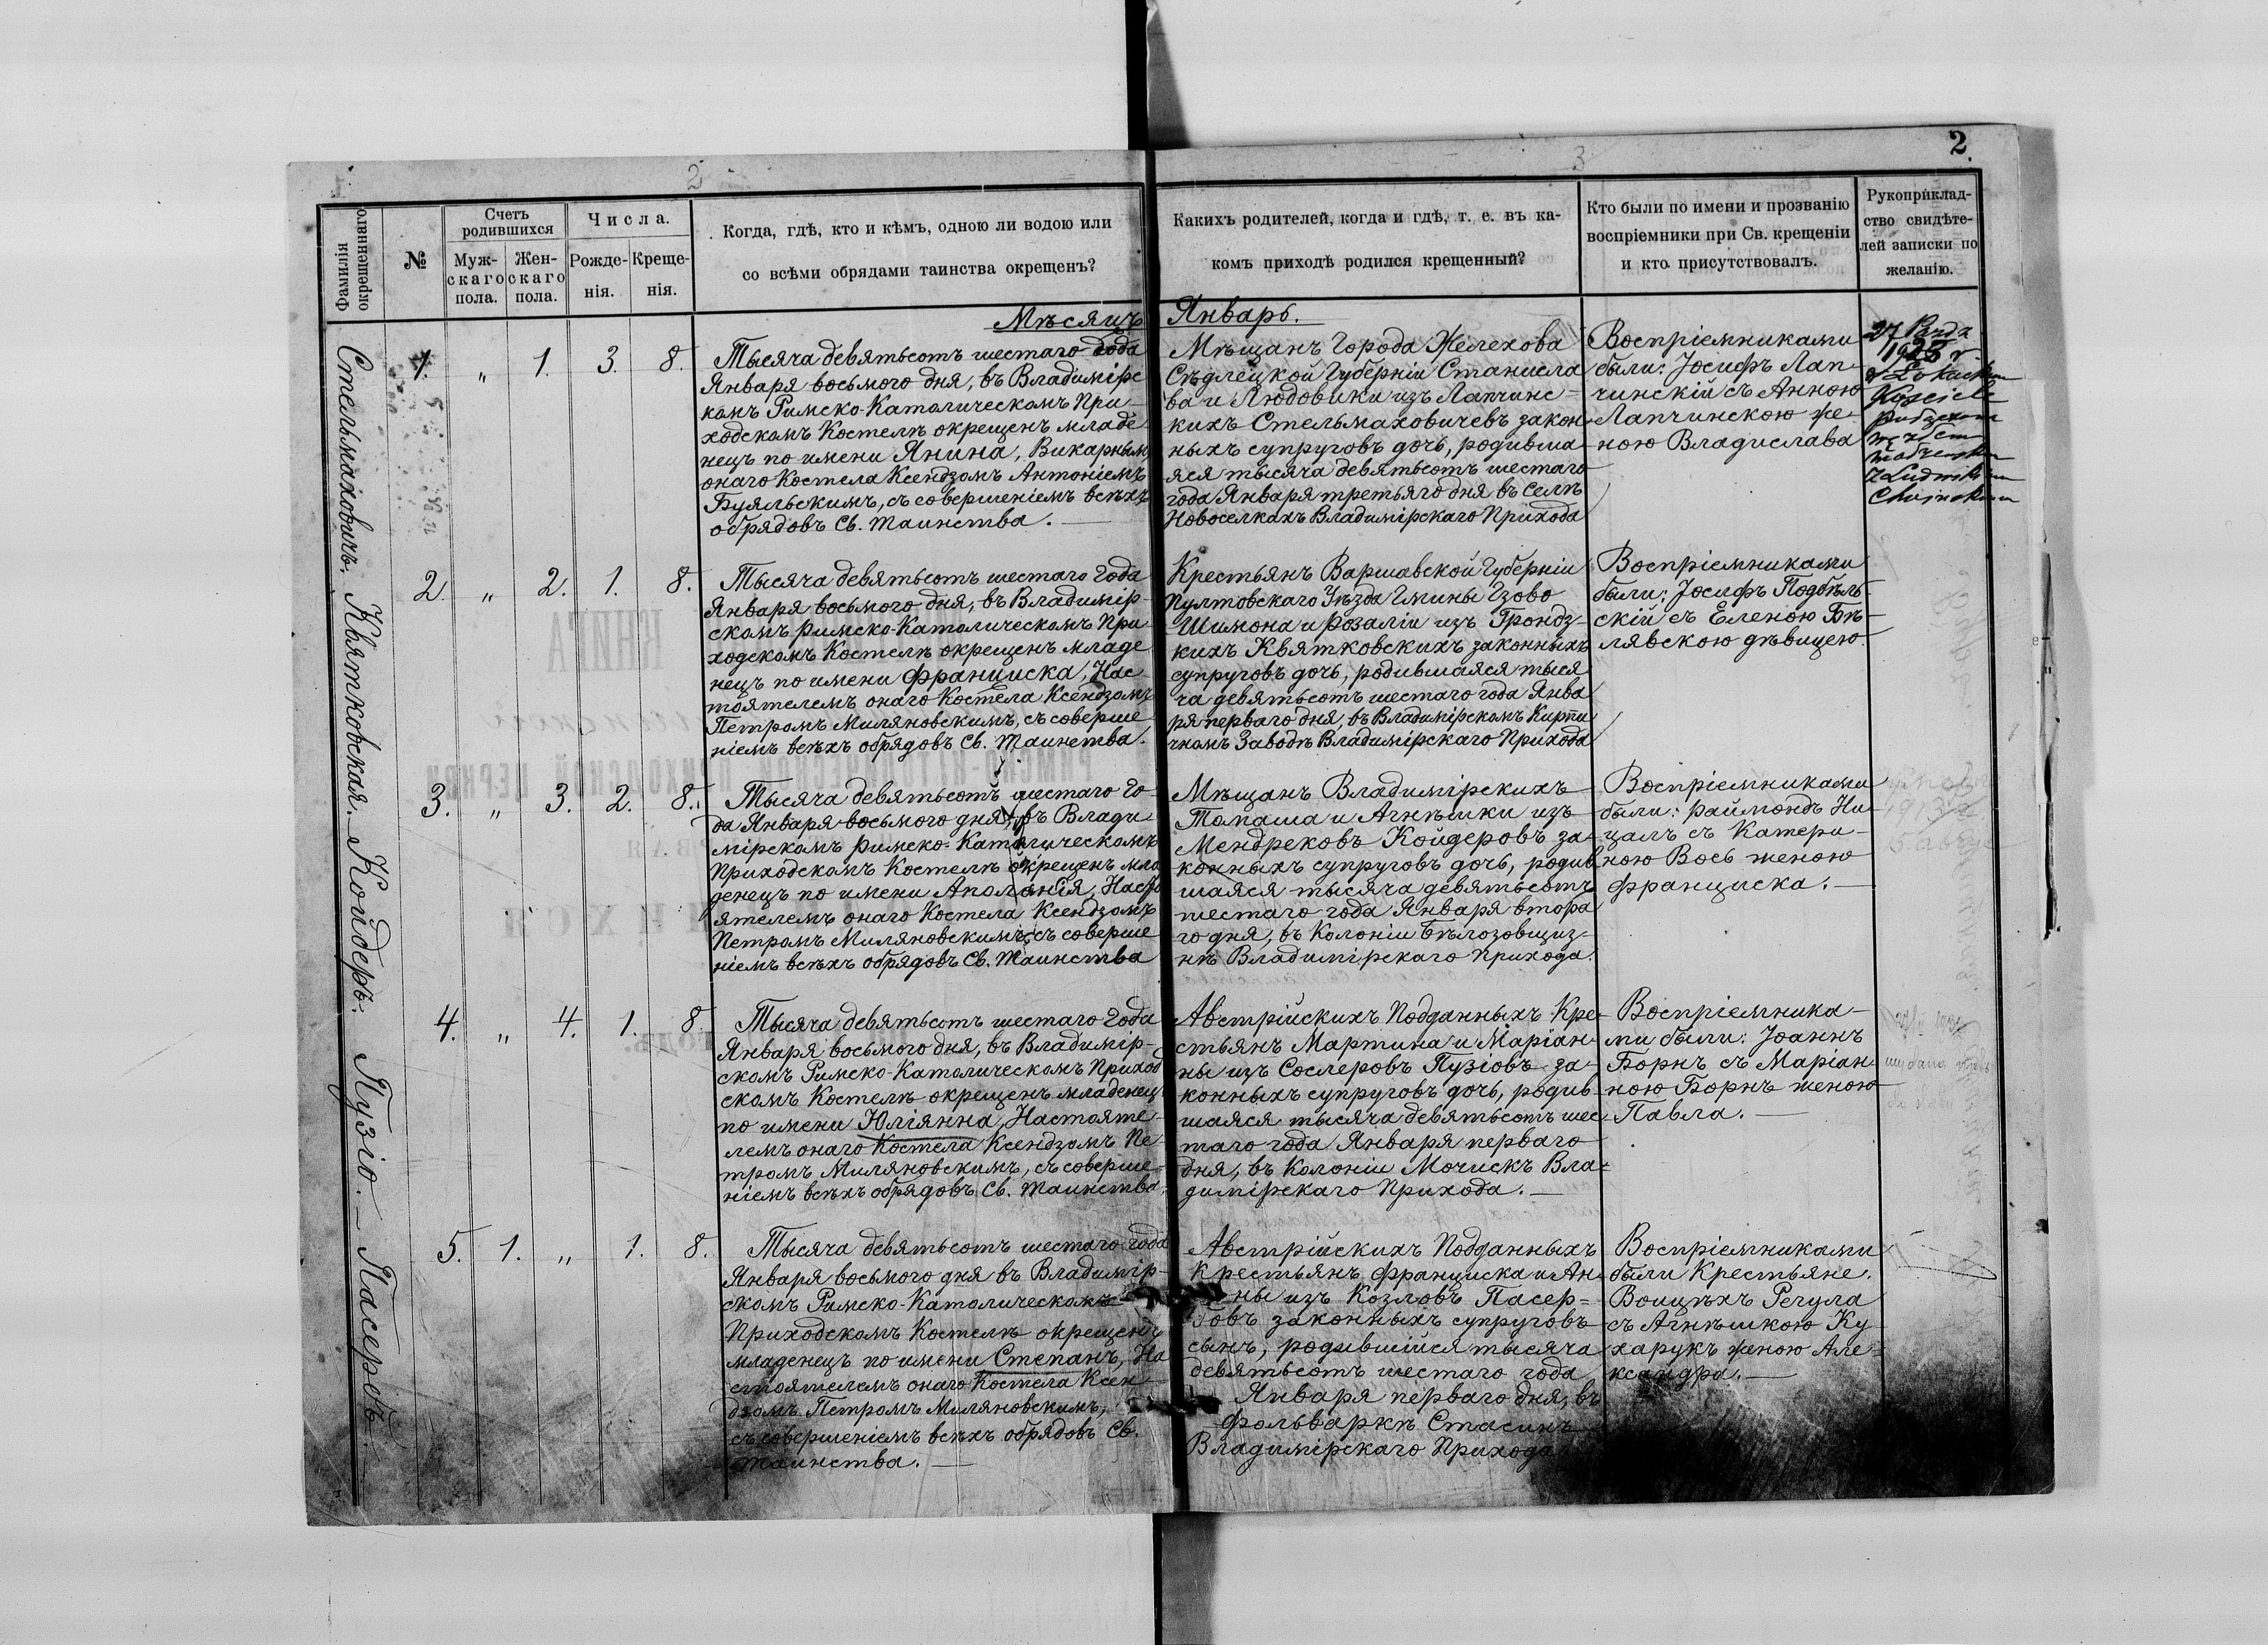 2
3
2.
Фамилія окрещеннаго
№
Счетъ родившихся
Муж-
скаго
пола.
Жен-
скаго
пола.
Числа.
Рожде-
нія.
Креще-
нія.
Когда, гдѣ, кто и кѣмъ, одною ли водою или
со всѣми обрядами таинства окрещенъ?
Какихъ родителей, когда и гдѣ, т. е. въ ка-
комъ приходѣ родился крещенный?
Кто были по имени и прозванію
воспріемники при Св. крещеніи
и кто присутствовалъ.
Рукоприклад-
ство свидѣте-
лей записки по
желанію.
Мѣсяцъ Январь.
Стельмаховичъ.
1. „ 1. 3. 8.
Тысяча девятьсотъ шестаго года
Января восьмого дня, въ Владимірс
комъ Римско-Католическомъ При-
ходскомъ Костелѣ окрещенъ младе
нецъ по имени Янина, Викарнымъ
онаго Костела Ксендзомъ Антоніемъ
Буяльскимъ, съ совершеніемъ всѣхъ
обрядовъ Св. Таинства.
Мѣщанъ Города Желехова
Сѣдлецкой Губерніи Станисла
ва и Людовики изъ Лапчинс-
кихъ Стельмаховичевъ закон-
ныхъ супруговъ дочь, родивша
яся тысяча девятьсотъ шестаго
года Января третьяго дня въ селѣ
Новоселкахъ Владимірскаго Прихода
Воспріемниками
были: Іосифъ Лап-
чинскій съ Анною
Лапчинскою же-
ною Владислава
27
1928 r.
Kościele
Ludwikiem
Квятковская.
2. „ 2. 1. 8.
Тысяча девятьсотъ шестаго года
Января восьмого дня, въ Владимір-
скомъ Римско-Католическомъ При
ходскомъ Костелѣ окрещенъ младе
нецъ по имени Франциска, Нас
тоятелемъ онаго Костела Ксендзомъ
Петромъ Миляновскимъ, съ соверше
ніемъ всѣхъ обрядовъ Св. Таинства.
Крестьянъ Варшавской Губерніи
Пултовскаго Уѣзда Гмины Гзово
Шимона и Розаліи изъ Грондз-
кихъ Квятковскихъ законныхъ
супруговъ дочь, родившаяся тыся
ча девятьсотъ шестаго года Янва
ря перваго дня, въ Владимірскомъ Кирпи
чномъ Заводѣ Владимірскаго Прихода
Воспріемниками
были: Іосифъ Подбѣль-
скій съ Еленою Бѣ-
лявскою дѣвицею.
Койдеръ.
3. „ 3. 2. 8.
Тысяча девятьсотъ шестаго го-
да Января восьмого дня, въ Влади
мірскомъ Римско-Католическомъ
Приходскомъ Костелѣ окрещенъ мла
денецъ по имени Аполонія, Насто
ятелемъ онаго Костела Ксендзомъ
Петромъ Миляновскимъ, съ соверше
ніемъ всѣхъ обрядовъ Св. Таинства
Мѣщанъ Владимірскихъ
Томаша и Агнѣшки изъ
Мендрековъ Койдеровъ за-
конныхъ супруговъ дочь, родив
шаяся тысяча девятьсотъ
шестаго года Января втора
го дня, въ Колоніи Бѣлозовщиз-
нѣ Владимірскаго Прихода.
Воспріемниками
были: Раймондъ Ни-
цалъ съ Катери-
ною Вось женою
Франциска.
Пузіо.
4. „ 4. 1. 8.
Тысяча девятьсотъ шестаго года
Января восьмого дня, въ Владимір-
скомъ Римско-Католическомъ Приход
скомъ Костелѣ окрещенъ младенецъ
по имени Юліянна, Настояте
лемъ онаго Костела Ксендзомъ Пе-
тромъ Миляновскимъ, съ соверше-
ніемъ всѣхъ обрядовъ Св. Таинства.
Австрійскихъ Подданныхъ Кре-
стьянъ Мартина и Маріан-
ны изъ Сослеровъ Пузіовъ за-
конныхъ супруговъ дочь, родив-
шаяся тысяча девятьсотъ шес-
таго года Января перваго
дня, въ Колоніи Мочискъ Вла-
димірскаго Прихода.
Воспріемника-
ми были: Іоаннъ
Борнъ съ Маріан-
ною Борнъ женою
Павла.
Пасеребъ.
5. 1. „ 1. 8.
Тысяча девятьсотъ шестаго года
Января восьмого дня въ Владимір-
скомъ Римско-Католическомъ
Приходскомъ Костелѣ окрещенъ
младенецъ по имени Степанъ, На
стоятелемъ онаго Костела Ксен-
дзомъ Петромъ Миляновскимъ,
съ совершеніемъ всѣхъ обрядовъ Св.
Таинства.
Австрійскихъ Подданныхъ
Крестьянъ Франциска и Ан-
ны изъ Козловъ Пасер-
бовъ законныхъ супруговъ
сынъ, родившійся тысяча
девятьсотъ шестаго года
Января перваго дня, въ
фольваркѣ Стасинъ
Владимірскаго Прихода
Воспріемниками
были Крестьяне.
Войцѣхъ Регула
съ Агнѣшкою Ку
харукъ женою Але-
ксандра.